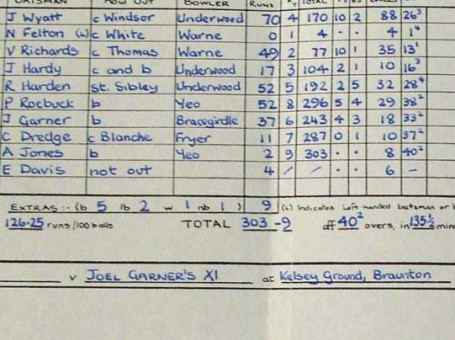 HOW OUT BOWLER RUNS TOTAL
J Wyatt c Windsor Underwood 70 4 170 10 2 88 26³
N Felton c White Warne 0 1 4 · · 4 1⁴
V Richards c Thomas Warne 49 2 77 10 1 35 13¹
J Hardy c and b Underwood 17 3 104 2 1 10 16³
R Harden st. Sibley Underwood 52 5 192 2 5 32 28⁴
P Roebuck b Yeo 52 8 296 5 4 29 38²
J Garner b Bracegirdle 37 6 243 4 3 18 33²
C Dredge c Blanche Fryer 11 7 287 0 1 10 37²
A Jones b Yeo 2 9 303 · · 8 40²
E Davis not out 4 / / · · 6 —
EXTRAS :- (b 5 lb 2 w 1 nb 1 ) 9 Indicates left-handed batsman or b
126·25 runs/100 balls TOTAL 303 -9 off 40² overs, in 135½ min
v JOEL GARNER'S XI at Kelsey Ground, Braunton